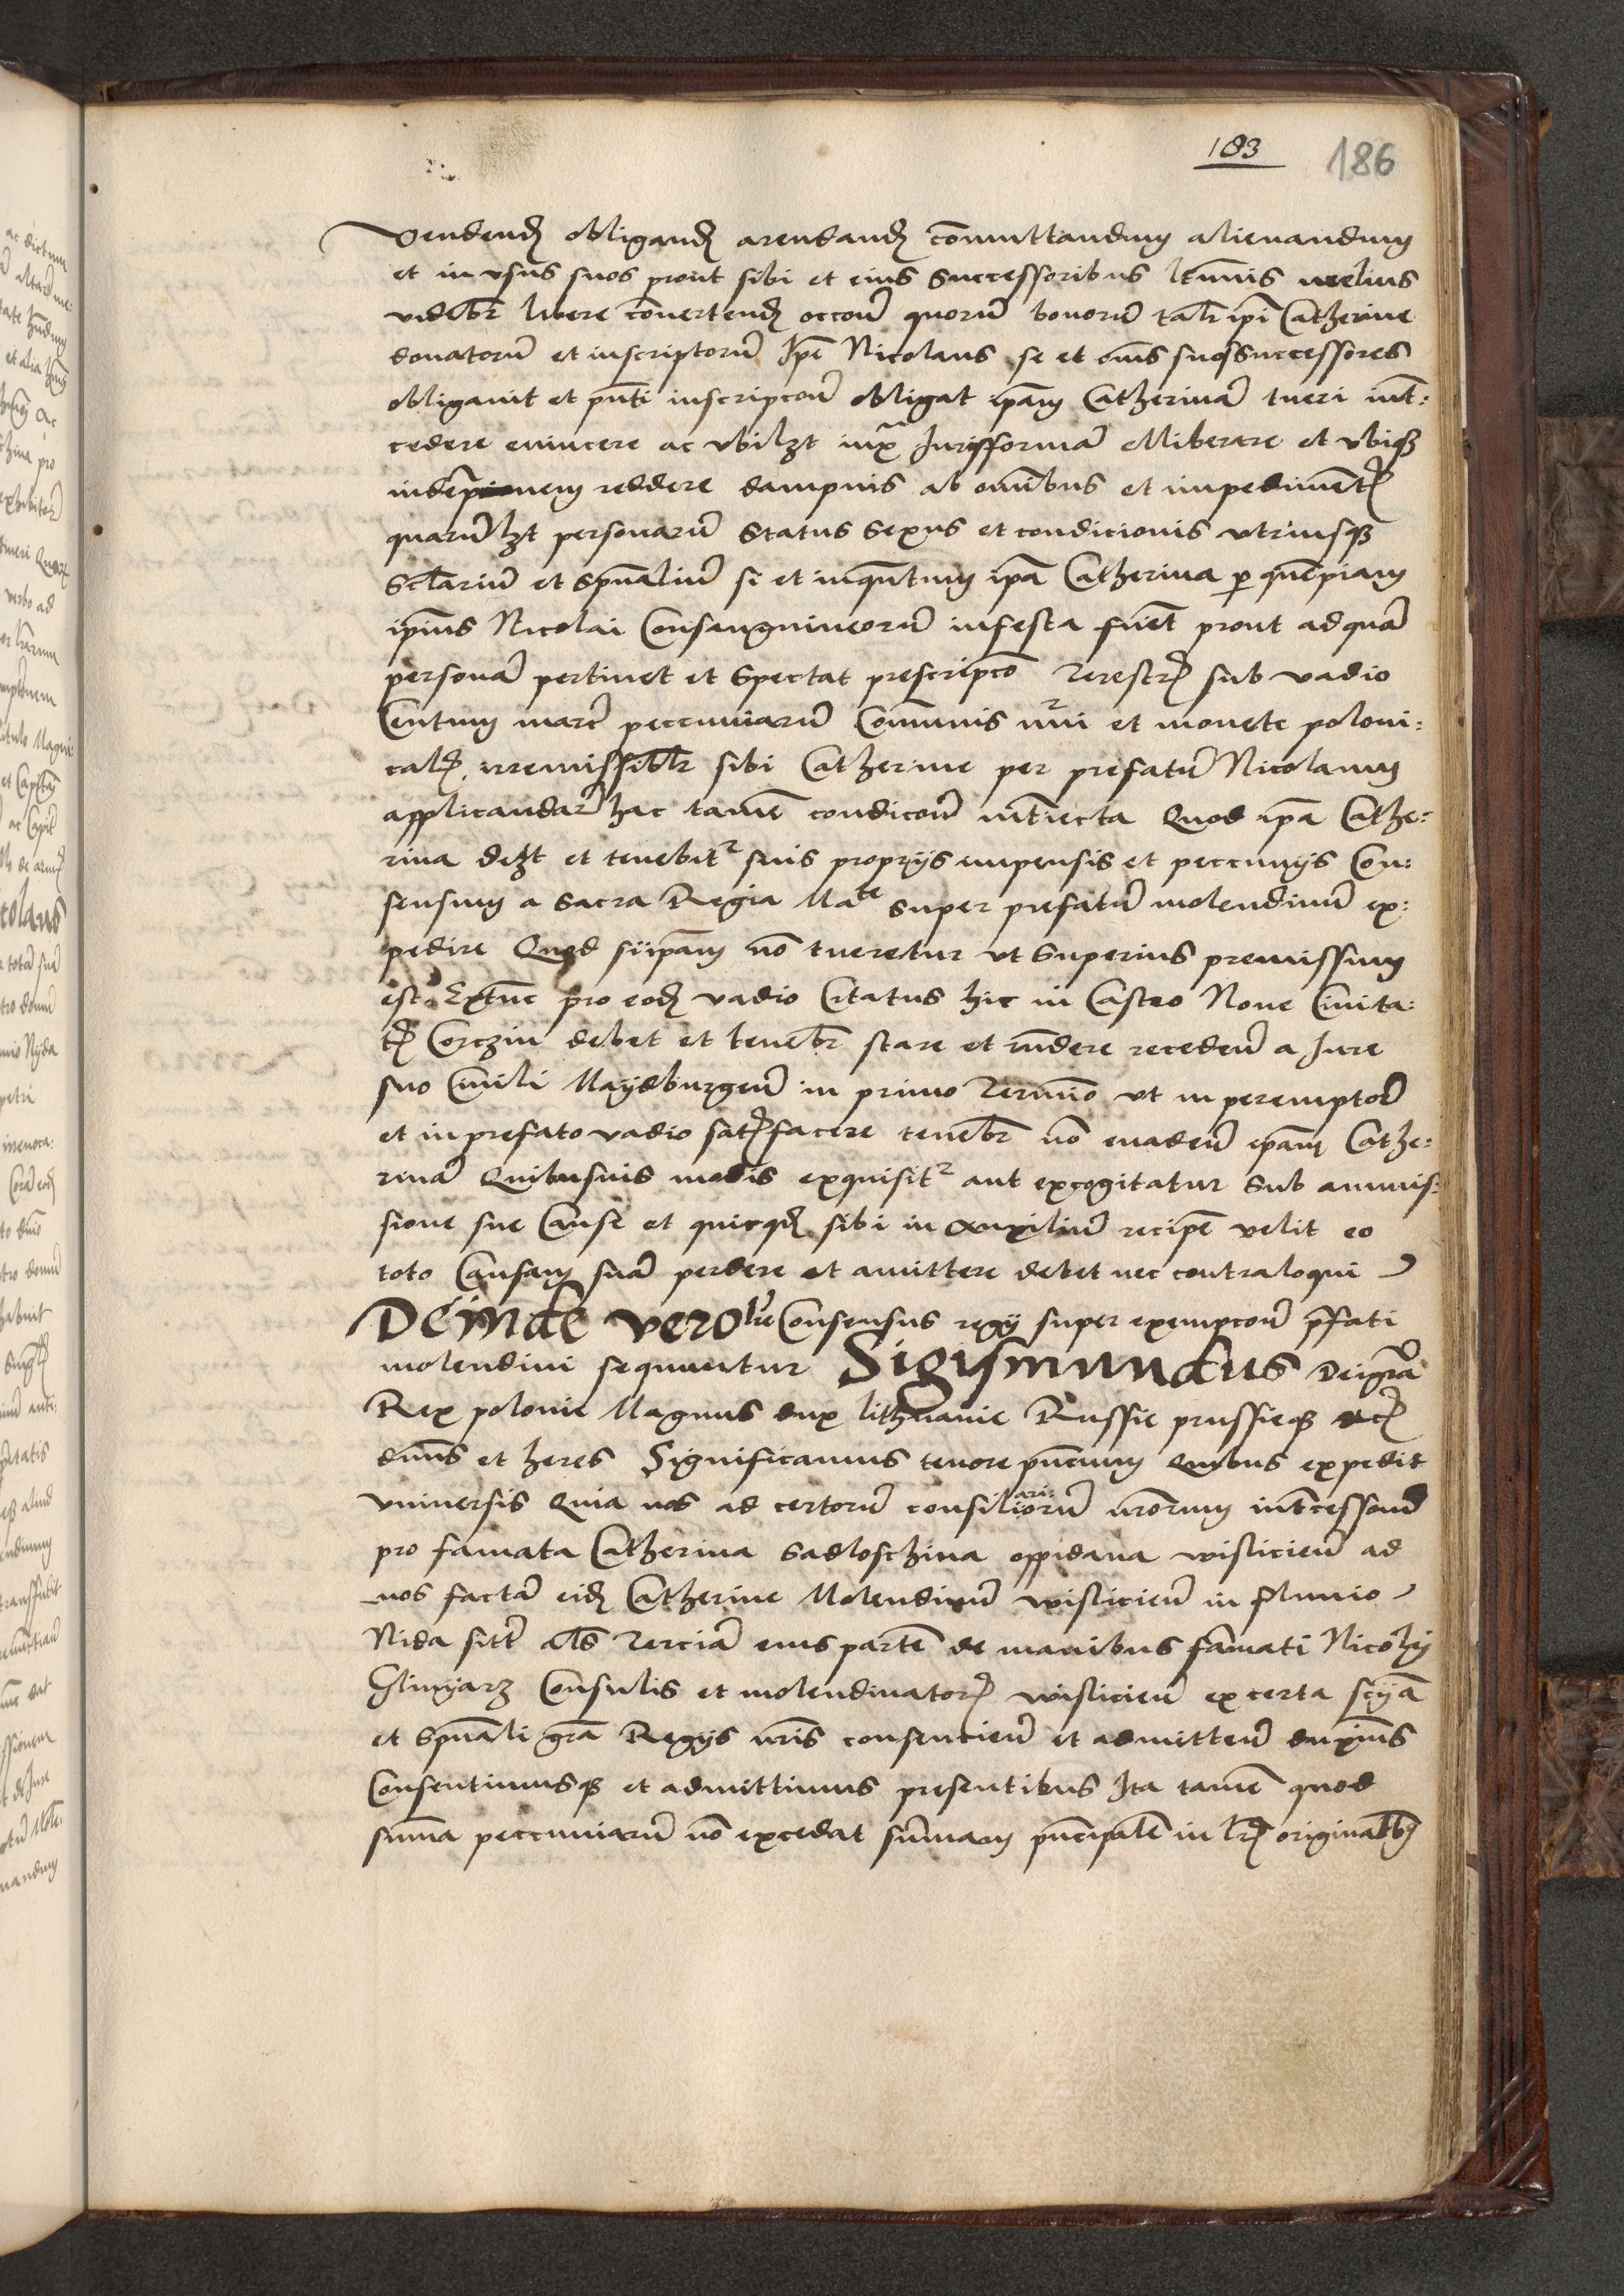 183 186
vendend obligand arendand commuttandum alienandum
et in vsus suos prout sibi et eius successoribus ltimis melius
videbr libere convertend occõn quorum bonorum talr ipi Catherine
donatorum et inscriptorum Ipe Nicolaus se et oms suos successores
obligavit et pnti inscripcõn obligat ipam Catherinam tueri int:
cedere evincere ac vbilzt iuxta Juris formam elliberare et vbiqz
indempnem reddere dampnis ab omibus et impediment
quarumlzt personarum status sexus et condicionis vtriusqz
sclarium et spualium si et inquntum ipa Catherina p quempiam
ipius Nicolai Consanguineorum infesta fuet prout ad quam
personam pertinet et spectat prescripco terestr sub vadio
Centum marc peccuniarum Commnis nri et monete poloni:
calis irremissiblr sibi Catherine per prefatum Nicolaum
applicandar hac tamen condicõn interiecta Quod ipa Cathe:
rina debzt et tenebitr suis proprijs inpensis et peccunijs Con:
sensum a sacra Regia Mate super prefatum molendinum ex:
pedire Quod si ipam no tueretur vt superius premissum
est Extunc pro eod vadio Citatus hic in Castro Noue Ciuita:
tis Corczin debet et tenebr stare et rndere receden a Jure
suo Ciuili Maydburgen in primo termino vt in peremptor
et in prefato vadio satisfacere tenebr no evaden ipam Cathe:
rinam Quibusuis modis exquisitr aut excogitatur sub ammis:
sione sue Cause et quicqd sibi in auxilium recipe velit eo
toto Causam suam perdere et amittere debet nec contraloqui
Deinde vero lre Consensus regij super exempcõn pfati
molendini sequuntur Sigismundus Dei gra
Rex polonie Magnus dux lithuanie Russie prussieqz etc
dnus et heres Significamus tenore pncium Quibus expedit
vniuersis Quia nos ad certorum consiliariorum nrorum intcession
pro famata Catherina Sadloschina oppidana wislicien ad
nos factam eid Catherine Molendinum wislicien in fluuio
Nida sitt als terciam eius partem de manibus famati Nicolaj
Glinyarz Consulis et molendinatoris wislicien ex certa scia
et spuali gra Regijs nris consencien et admitten duximus
Consentimusqz et admittimus presentibus Ita tamen quod
suma peccuniarum no excedat summam pncipalem in lris originalibus